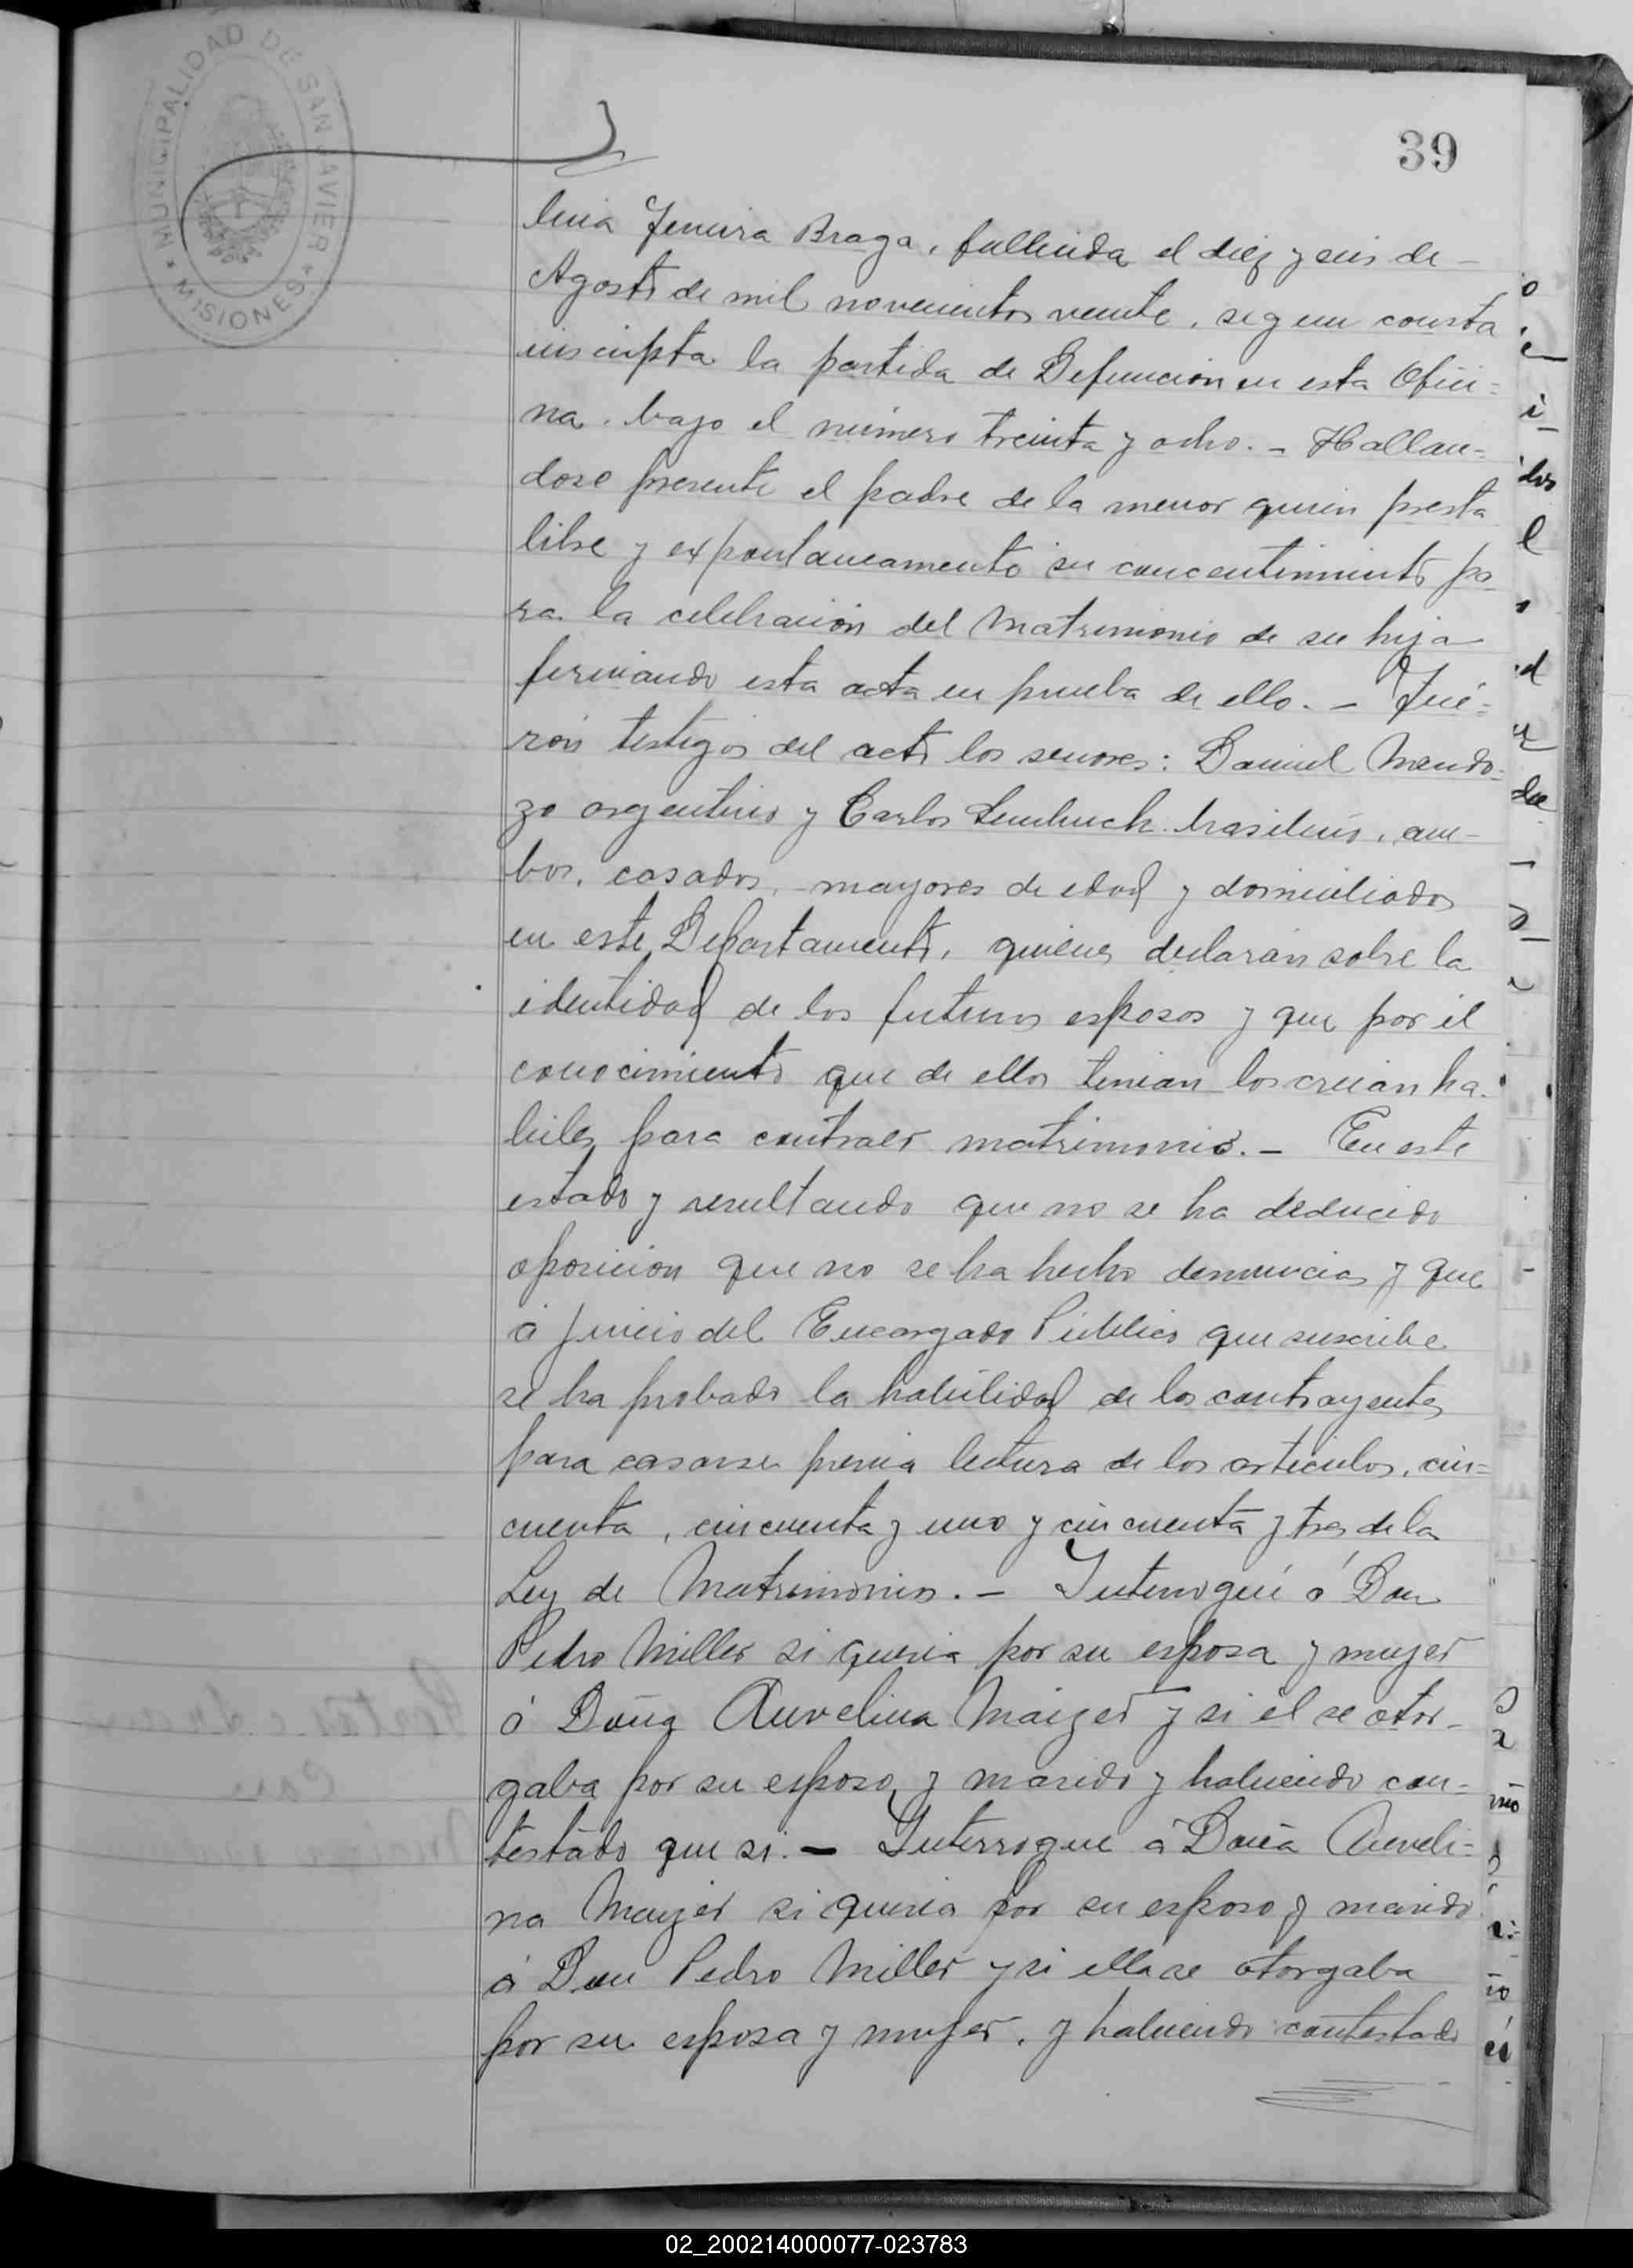 MUNICIPALIDAD DE SAN JAVIER
* MISIONES *
39
Braga, fallecida el diez y seis de
Agosto de mil novecientos veinte, segun consta
inscripta la partida de Defuncion en esta Ofici=
na. bajo el número treinta y ocho. - Hallan=
dose presente el padre de la menor quien presta
libre y expontaneamente su concentimiento pa
ra la celebración del Matrimonio de su hija
firmando esta acta en prueba de ello. - Fué=
ron testigos del acto los senores: Daniel Mendo=
zo argentino y Carlos brasilero, am-
bos, casados, mayores de edad y domiciliados
en este Departamento, quienes declaran sobre la
identidad de los futuros esposos y que por él
conocimiento que de ellos tenian los creian ha
biles para contraer matrimonio. - En este
estado y resultando que no se ha deducido
oposicion que no se ha hecho denuncias y que
á juicio del Encargado Público que suscribe
se ha probado la habilidad de los contrayentes
para casarse previa lectura de los articulos, cin=
cuenta, cincuenta y uno y cincuenta y tres de la
Ley de Matrimonio. - Interrogué á Don
Pedro Miller si queria por su esposa y mujer
á Doña Aurelina Maizer y si el se otor-
gaba por su esposo, y marido y habiendo con=
testado que si. - Interrogue á Doña Aureli=
na Mayer si queria por su esposo y marido
á Don Pedro Miller y si ella se otorgaba
por su esposa y mujer, y habiendo contestado
02_200214000077-023783